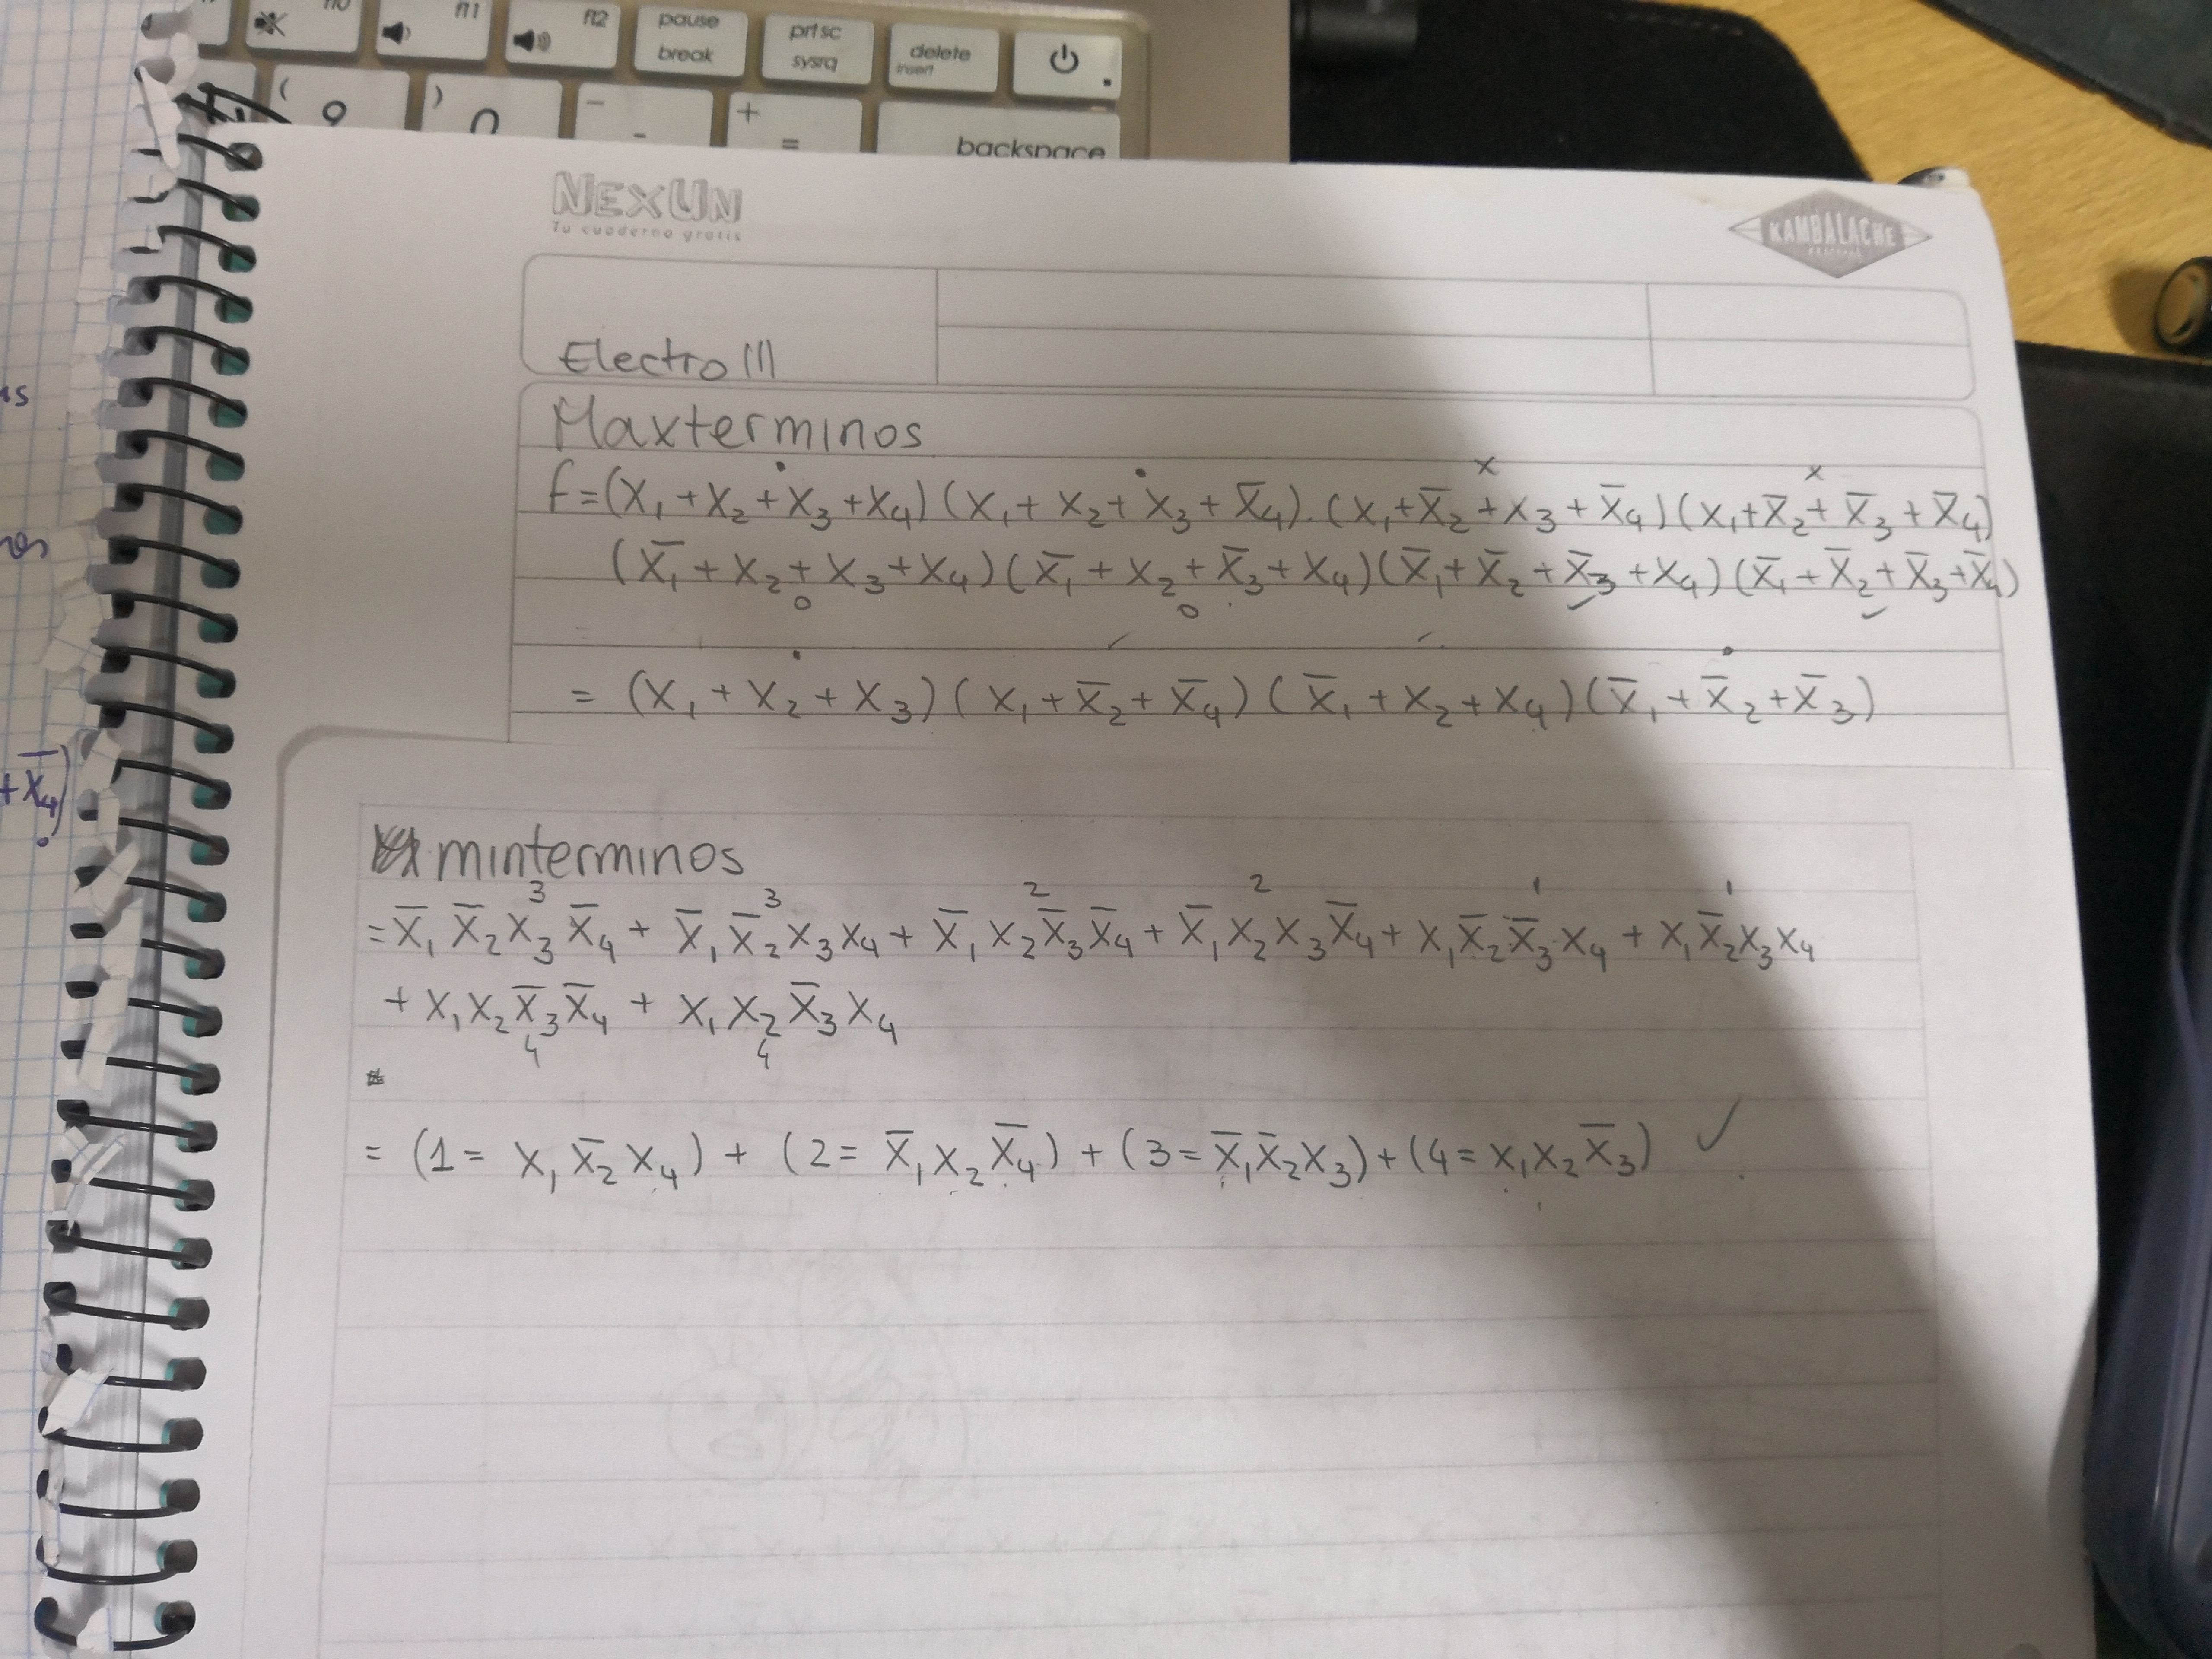 f11
f12
pause
break
prt sc
sysrq
delete
insert
(
9
)
0
-
-
+
=
backspace
NEXUN
Tu cuaderno gratis
KAMBALACHE
Electro III
Maxterminos
f = (X₁ + X₂ + X₃ + X₄) (X₁ + X₂ + X₃ + X̄₄) . (X₁ + X̄₂ + X₃ + X̄₄) (X₁ + X̄₂ + X̄₃ + X̄₄)
(X̄₁ + X₂ + X₃ + X₄) (X̄₁ + X₂ + X̄₃ + X₄) (X̄₁ + X̄₂ + X̄₃ + X₄) (X̄₁ + X̄₂ + X̄₃ + X̄₄)
= (X₁ + X₂ + X₃) (X₁ + X̄₂ + X̄₄) (X̄₁ + X₂ + X₄) (X̄₁ + X̄₂ + X̄₃)
+ X̄₄)
minterminos
3 3 2 2 1 1
= X̄₁ X̄₂ X₃ X̄₄ + X̄₁ X̄₂ X₃ X₄ + X̄₁ X₂ X̄₃ X̄₄ + X̄₁ X₂ X₃ X̄₄ + X₁ X̄₂ X̄₃ X₄ + X₁ X̄₂ X₃ X₄
+ X₁ X₂ X̄₃ X̄₄ + X₁ X₂ X̄₃ X₄
4 4
= (1 = X₁ X̄₂ X₄) + (2 = X̄₁ X₂ X̄₄) + (3 = X̄₁ X̄₂ X₃) + (4 = X₁ X₂ X̄₃) ✓